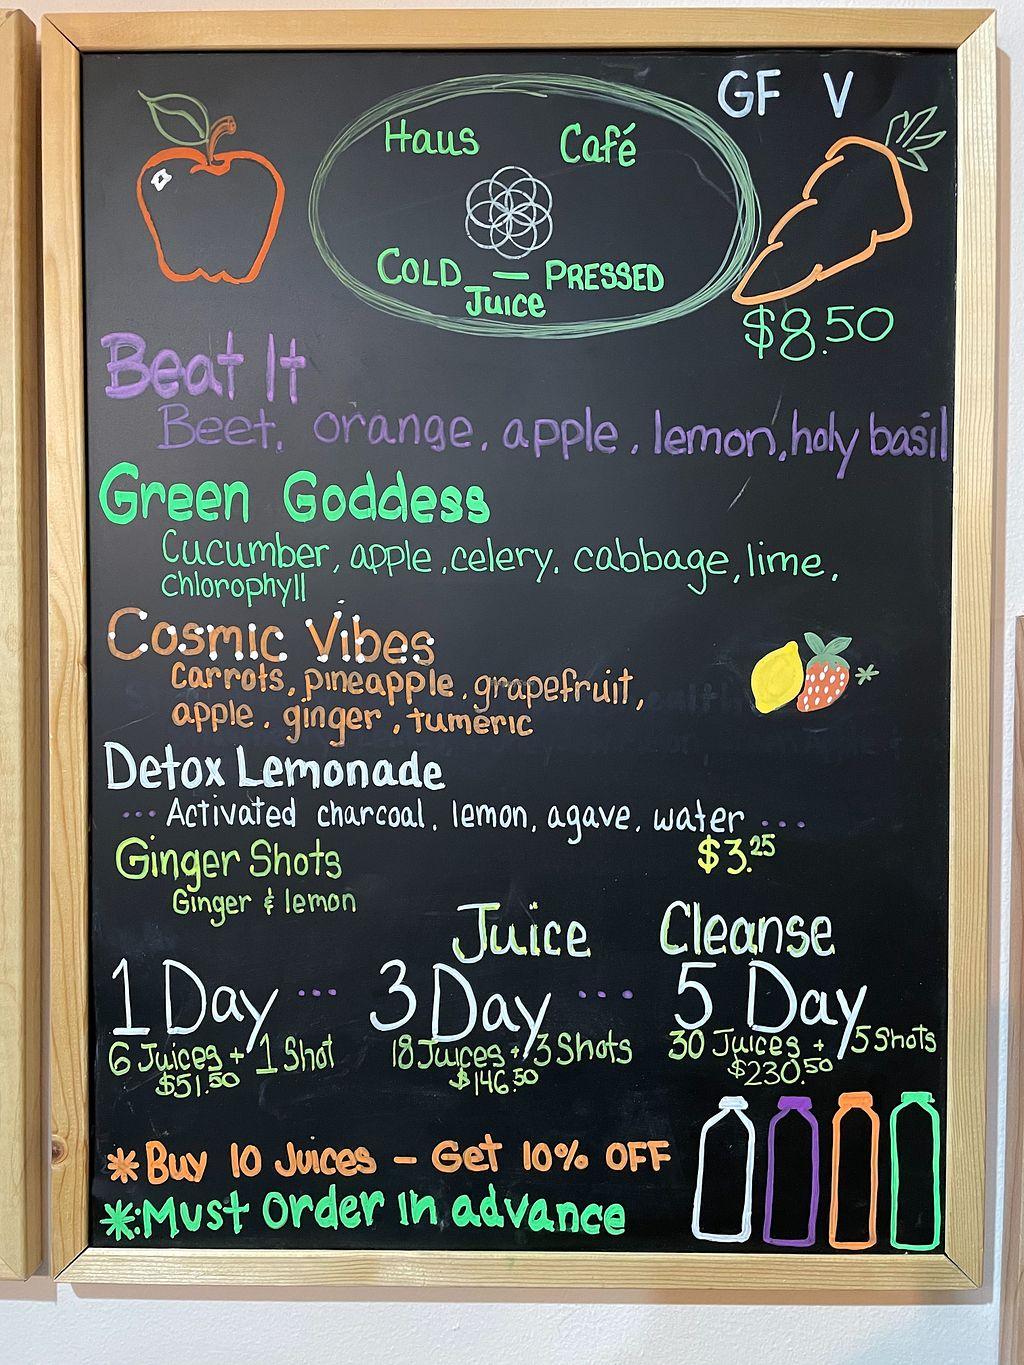 GF V
Haus Café
COLD — PRESSED
Juice
$8.50
Beat It
Beet, orange, apple, lemon, holy basil
Green Goddess
Cucumber, apple, celery, cabbage, lime,
Chlorophyll
Cosmic Vibes
Carrots, pineapple, grapefruit,
apple, ginger, tumeric
Detox Lemonade
... Activated charcoal, lemon, agave, water ...
$3.25
Ginger Shots
Ginger & lemon
Juice Cleanse
1 Day ... 3 Day ... 5 Day
6 Juices + 1 Shot 18 Juices + 3 Shots 30 Juices + 5 Shots
$51.50 $146.50 $230.50
* Buy 10 Juices – Get 10% OFF
*: Must Order In advance